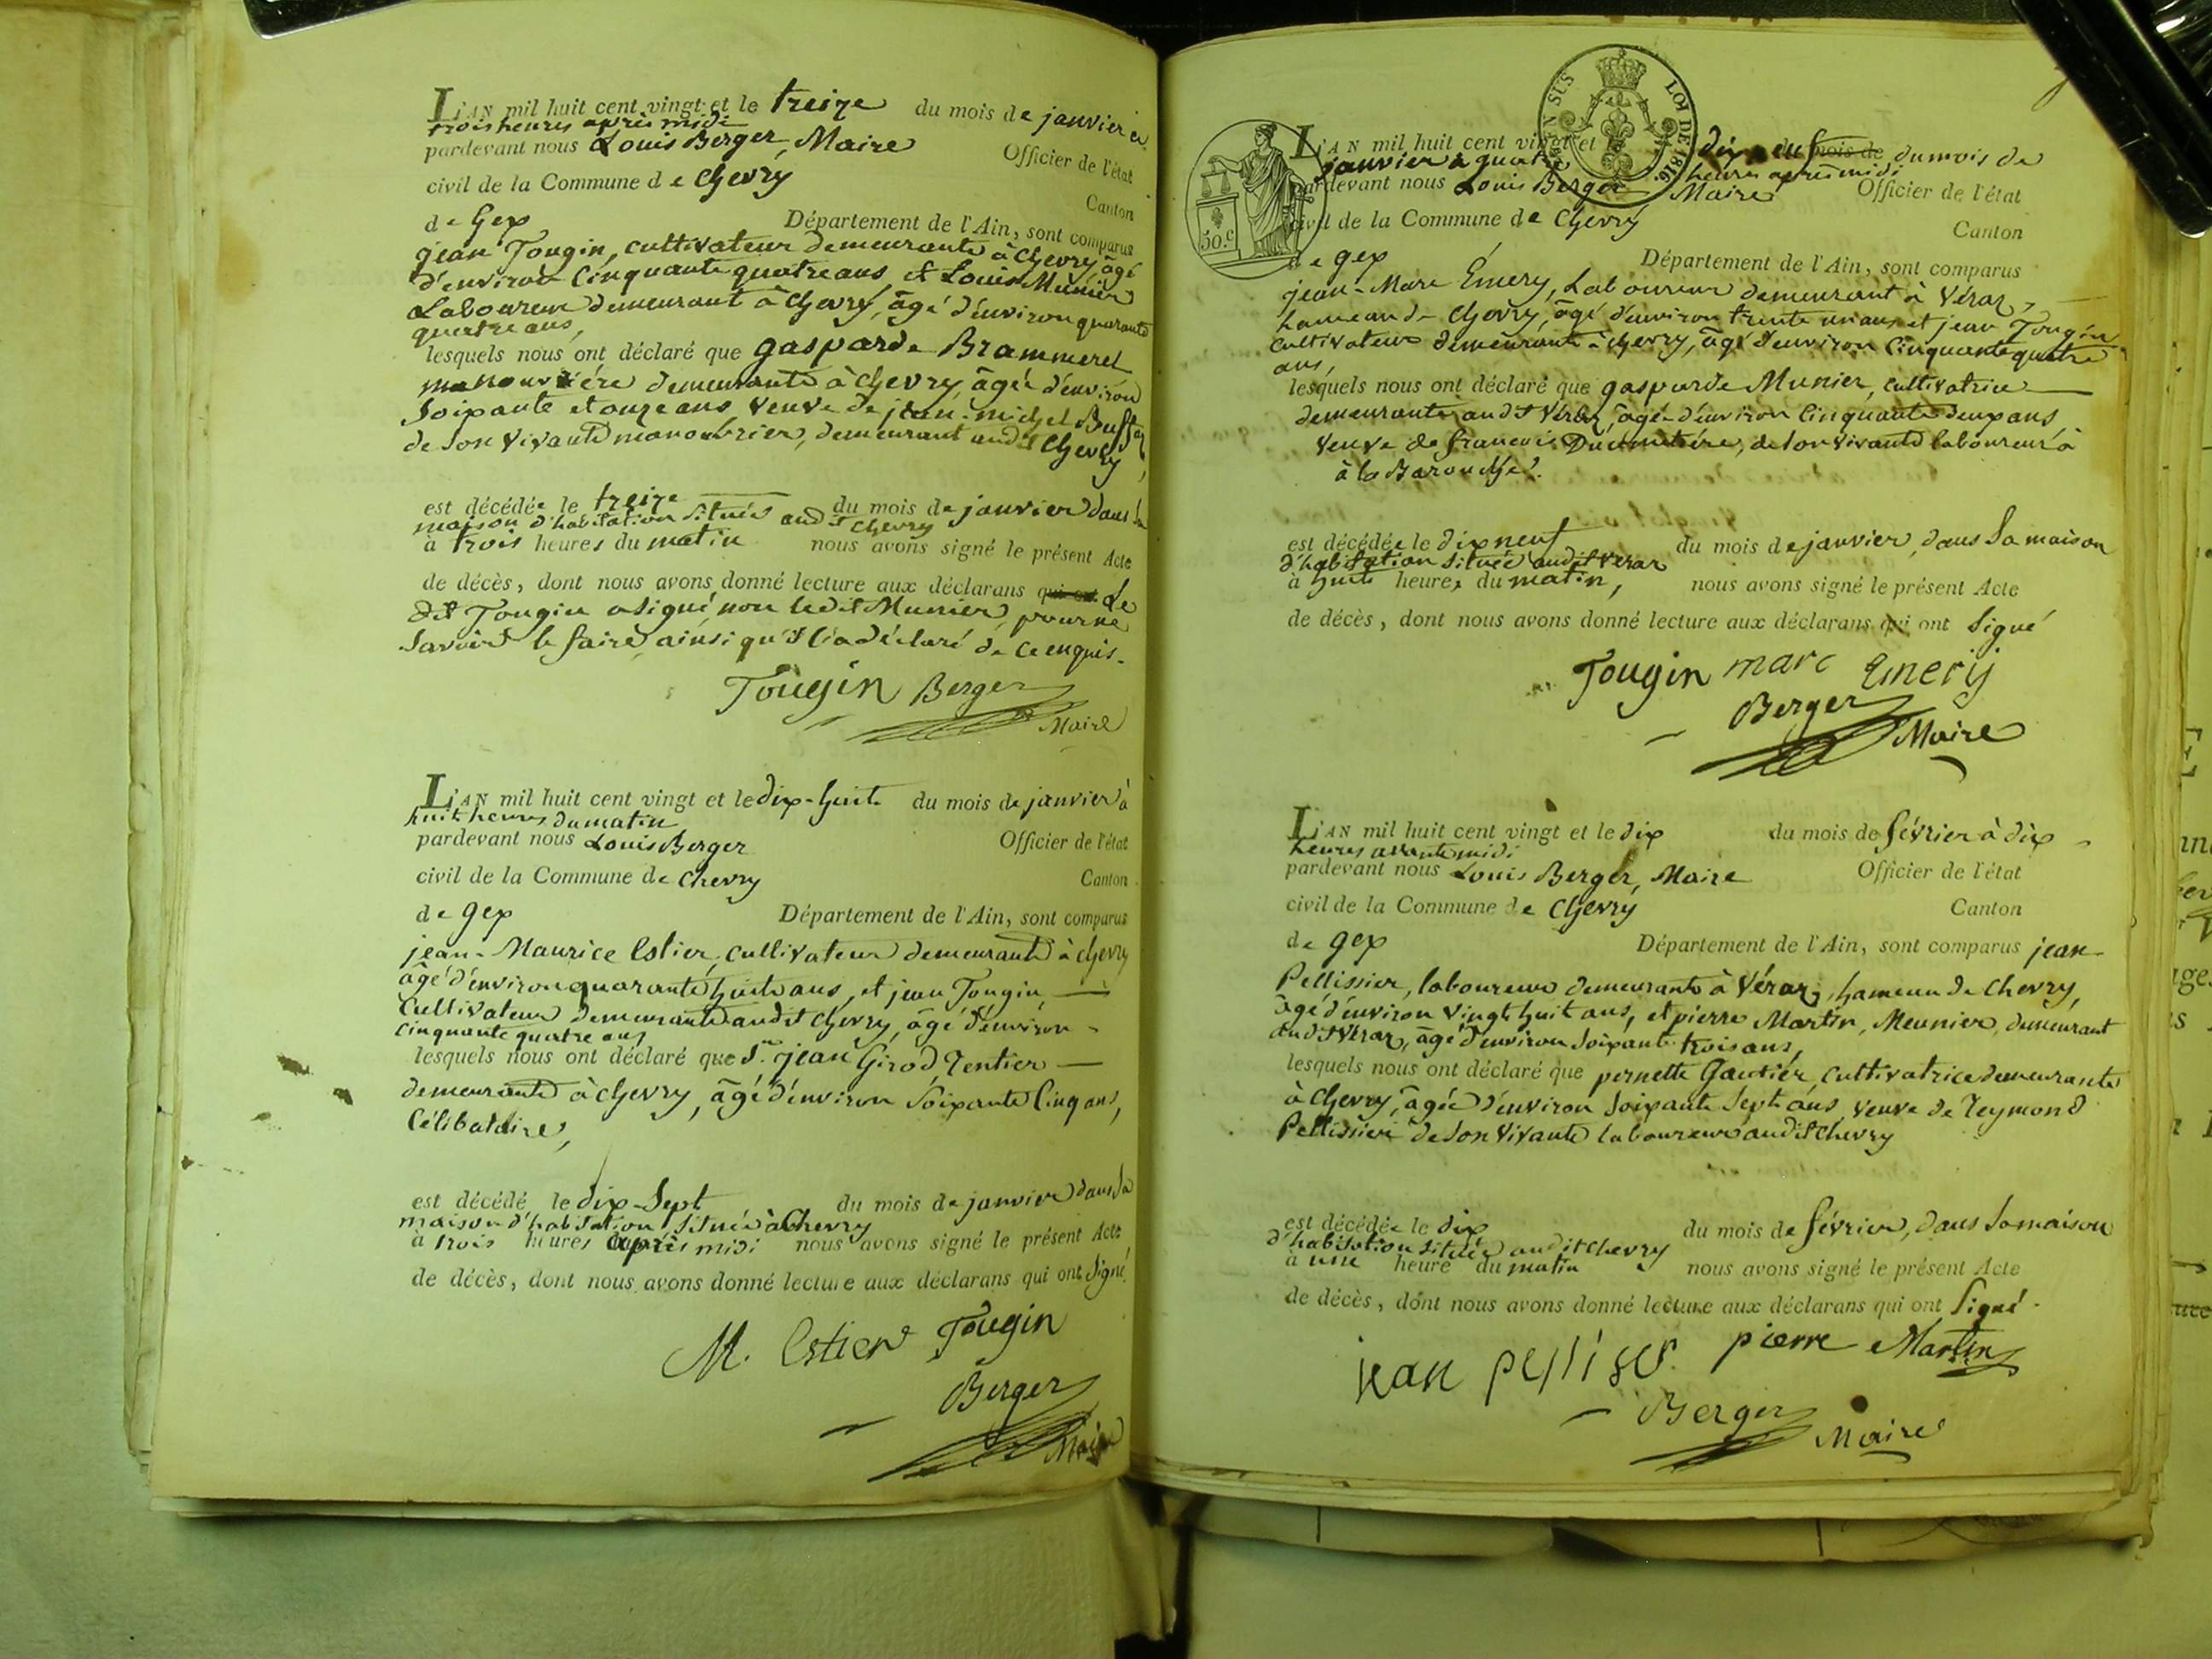 L'AN mil huit cent vingt et le treize du mois de janvier à
trois heures après midi
pardevant nous Louis Berger, Maire Officier de l'état
civil de la Commune de Chevry
Canton
de Gex Département de l'Ain, sont comparus
jean Tougin, cultivateur demeurant à Chevry, âgé
d'environ Cinquante quatre ans, et Louis Munier
Laboureur demeurant à Chevry, âgé d'environ quarante
quatre ans,
lesquels nous ont déclaré que gasparde Brammerel
manouvrière demeurante à Chevry, âgée d'environ
soixante et onze ans veuve de jean-michel
de son vivant manouvrier, demeurant audit Chevry,
est décédée le treize du mois de janvier dans sa
maison d'habitation située audit Chevry
à trois heures du matin nous avons signé le présent Acte
de décès, dont nous avons donné lecture aux déclarans qui ont Le
dit Tougin a signé, non ledit Munier, pour ne
savoir le faire, ainsi qu'il l'a déclaré de ce enquis.
Tougin Berger
Maire
L'AN mil huit cent vingt et le dix-huit du mois de janvier à
huit heures du matin
pardevant nous Louis Berger Officier de l'état
civil de la Commune de Chevry Canton
de gex Département de l'Ain, sont comparus
jean-Maurice Estier, cultivateur demeurant à Chevry
âgé d'environ quarante huit ans, et jean Tougin,
Cultivateur demeurant audit Chevry, âgé d'environ
cinquante quatre ans
lesquels nous ont déclaré que Sr. jean Girod Rentier
demeurant à Chevry, âgé d'environ soixante Cinq ans,
Célibataire,
est décédé le dix-Sept du mois de janvier dans sa
maison d'habitation située à Chevry
à trois heures après midi nous avons signé le présent Acte
de décès, dont nous avons donné lecture aux déclarans qui ont signé.
M. Estier Tougin
Berger
Maire
SUS LOI DE 1816
50.c
L'AN mil huit cent vingt et le dix neuf mois de du mois de
janvier à quatre heures après midi
pardevant nous Louis Berger Maire Officier de l'état
civil de la Commune de Chevry
Canton
de gex Département de l'Ain, sont comparus
jean-Marc Emery, Laboureur demeurant à Véraz,
hameau de Chevry, âgé d'environ trente un ans et jean Tougin
Cultivateur demeurant à Chevry, âgé d'environ Cinquante quatre
ans,
lesquels nous ont déclaré que gasparde Munier, cultivatrice
demeurante audit Véraz, âgée d'environ Cinquante deux ans
veuve de françois Ducimetière, de son vivant laboureur à
à la Barouche.
est décédée le dix neuf du mois de janvier, dans sa maison
d'habitation située audit Véraz
à huit heures du matin, nous avons signé le présent Acte
de décès, dont nous avons donné lecture aux déclarans qui ont signé
Tougin marc Emerij
Berger
Maire
L'AN mil huit cent vingt et le dix du mois de février à dix
heures avant midi
pardevant nous Louis Berger, Maire Officier de l'état
civil de la Commune de Chevry Canton
de gex Département de l'Ain, sont comparus jean-
Pellissier, laboureur demeurant à Véraz, hameau de Chevry,
âgé d'environ vingt huit ans, et pierre Martin, Meunier, demeurant
audit Véraz, âgé d'environ soixante trois ans,
lesquels nous ont déclaré que pernette Gautier, cultivatrice demeurante
à Chevry, âgée d'environ soixante sept ans veuve de Reymond
Pellissier de son vivant laboureur audit Chevry
est décédée le dix du mois de février, dans sa maison
d'habitation située audit Chevry
à une heure du matin nous avons signé le présent Acte
de décès, dont nous avons donné lecture aux déclarans qui ont signé.
jean pelliser pierre Martin
Berger
Maire